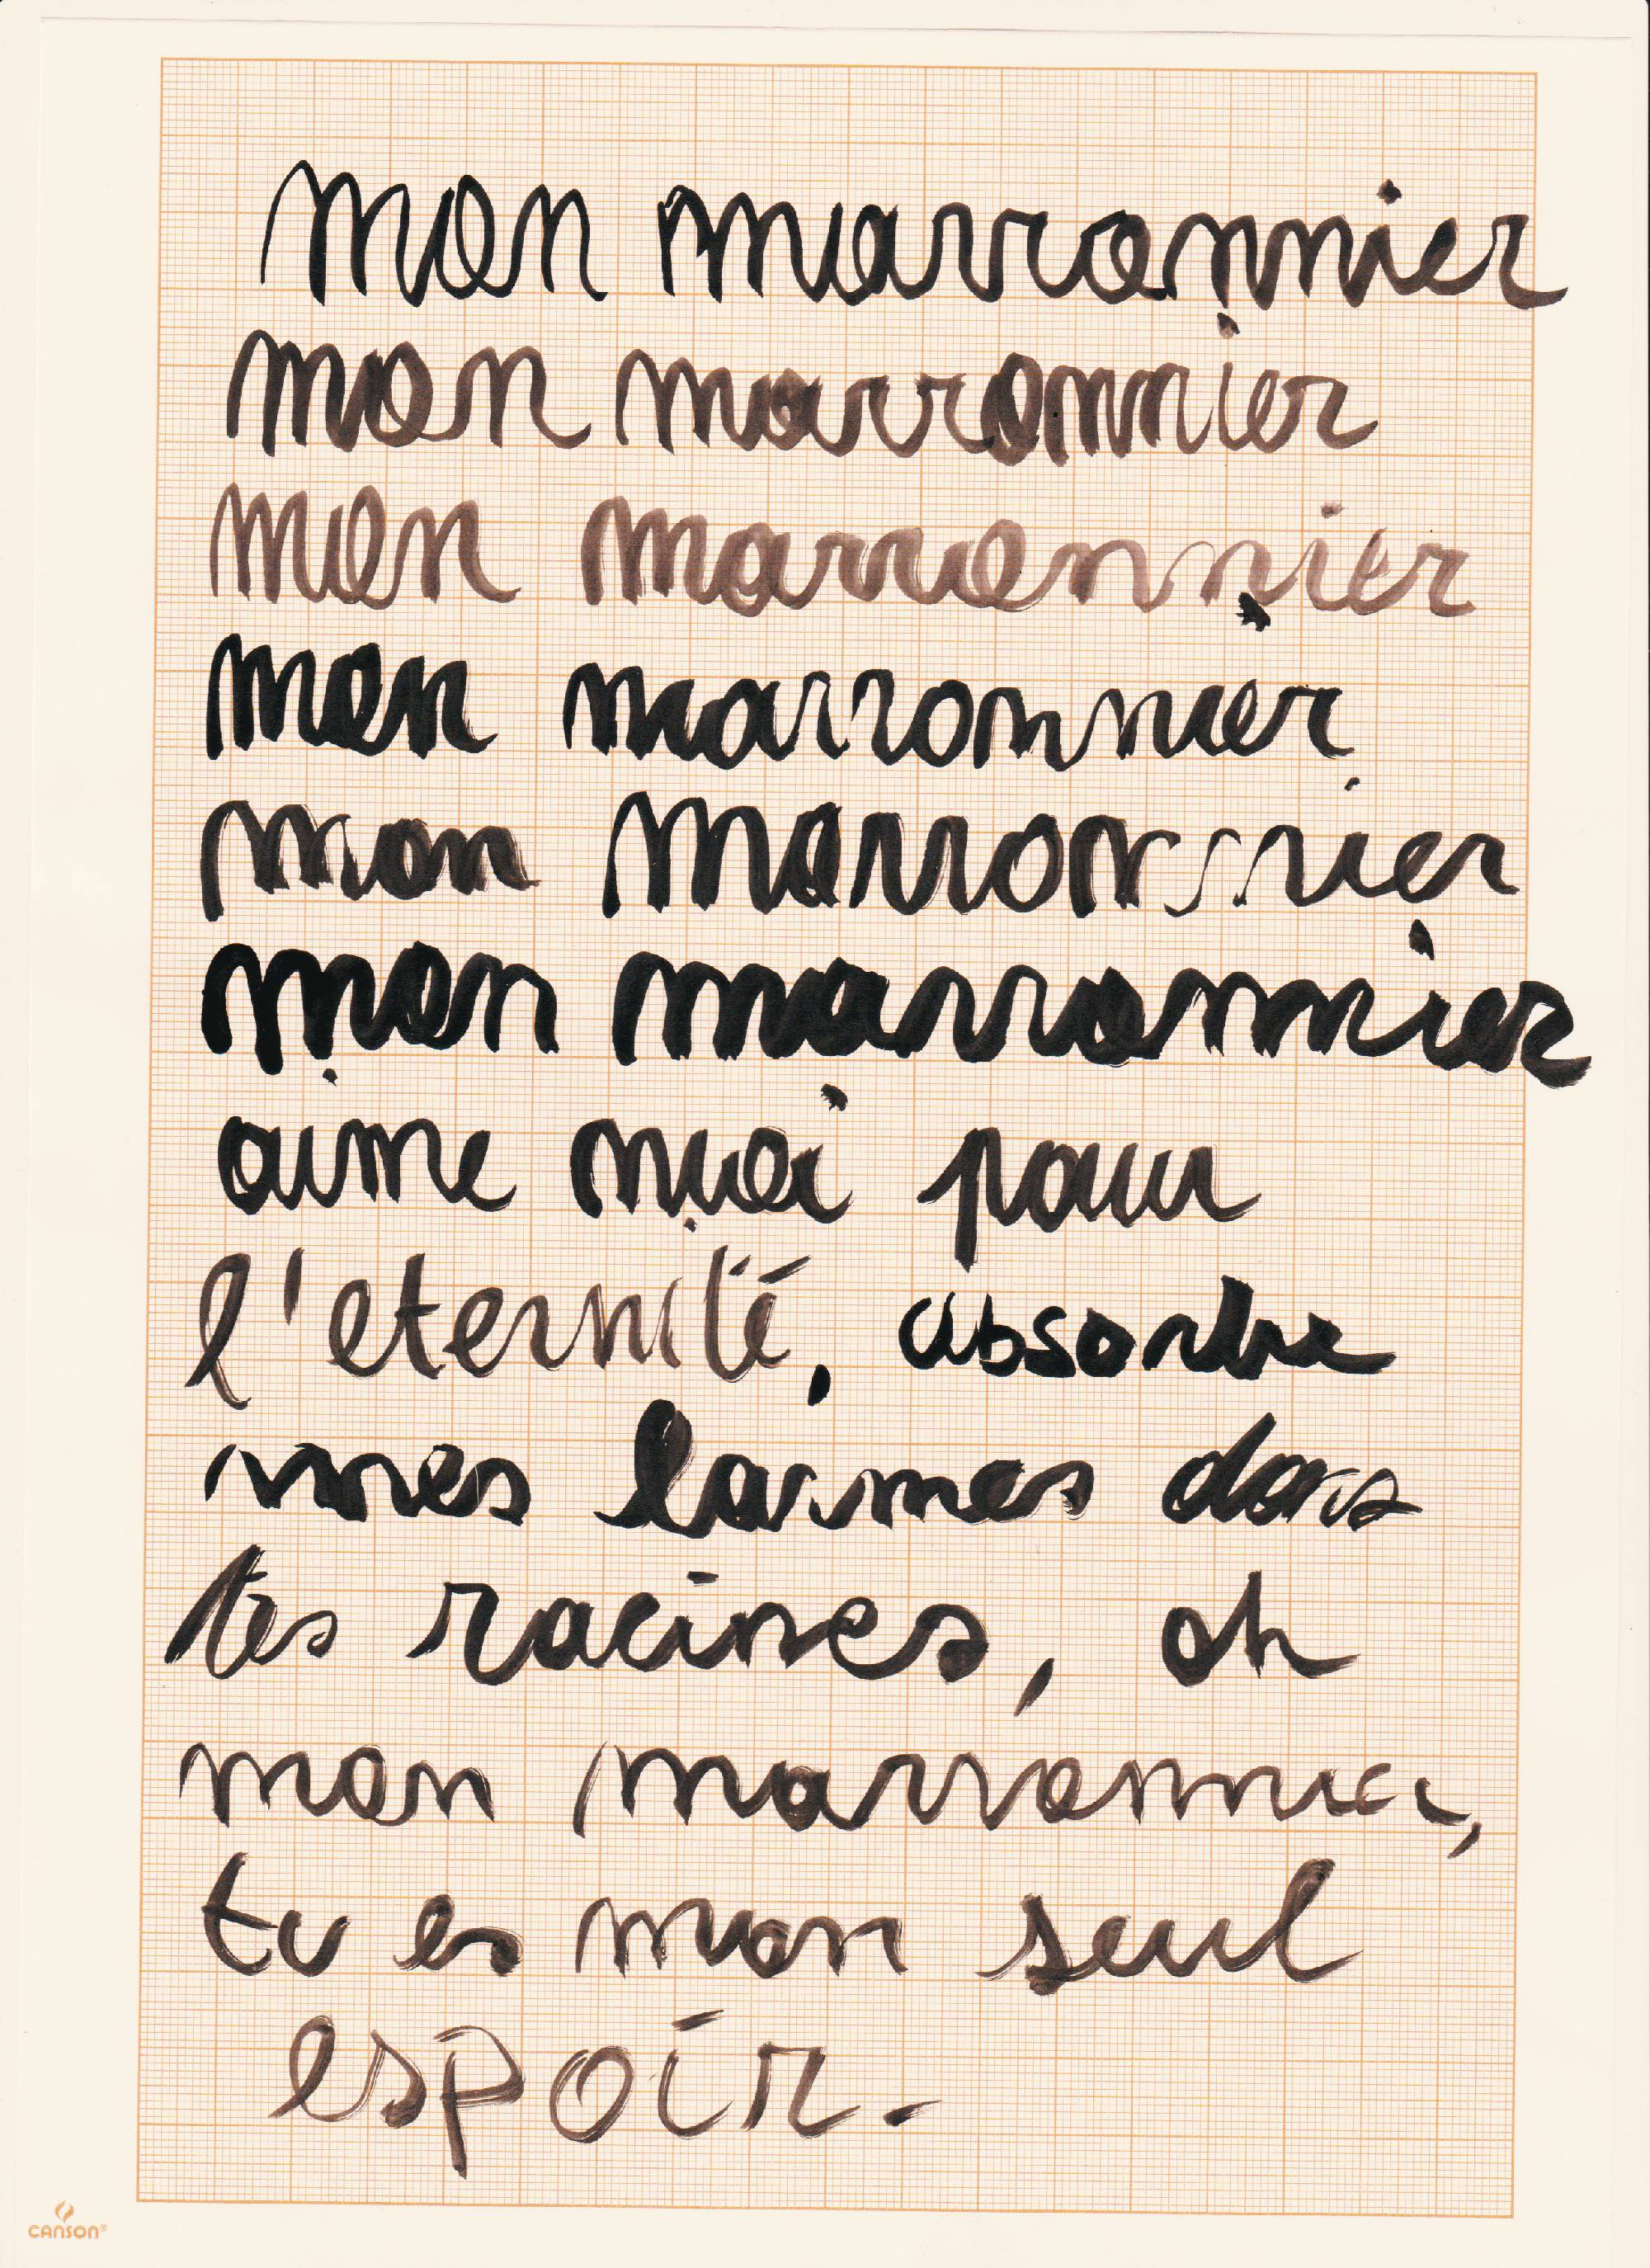 mon marronnier
mon marronnier
mon marronnier
mon marronnier
mon marronnier
mon marronnier
aime moi pour
l'eternité, absorbe
mes larmes dans
tes racines, oh
mon marronnier,
tu es mon seul
espoir.
CANSON®